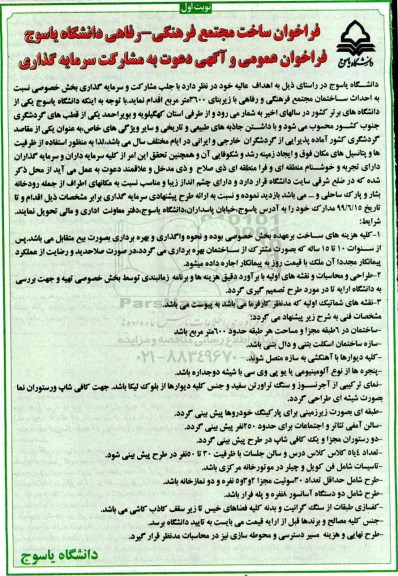 نوبت اول
فراخوان ساخت مجتمع فرهنگی-رفاهی دانشگاه یاسوج
فراخوان عمومی و آگهی دعوت به مشارکت سرمایه گذاری
دانشگاه یاسوج
دانشگاه یاسوج در راستای ذیل به اهداف عالیه خود در نظر دارد با جلب مشارکت و سرمایه گذاری بخش خصوصی نسبت
به احداث ساختمان مجتمع فرهنگی و رفاهی با زیربنای ۳۶۰۰متر مربع اقدام نماید.با توجه به اینکه دانشگاه یاسوج یکی از
دانشگاه های برتر کشور در سالهای اخیر به شمار می رود و از طرفی استان کهگیلویه و بویراحمد یکی از قطب های گردشگری
جنوب کشور محسوب می شود و با داشتن جاذبه های طبیعی و تاریخی و سایر ویژگی های خاص،به عنوان یکی از مقاصد
گردشگری کشور آماده پذیرایی از گردشگران خارجی و ایرانی در ایام مختلف سال می باشد،لذا به منظور استفاده از ظرفیت
ها و پتانسیل های مکان فوق و ایجاد زمینه رشد و شکوفایی آن و همچنین تحقق این امر از کلیه سرمایه داران و سرمایه گذاران
دارای تجربه و خوشنام منطقه ای و فرا منطقه ای ذی صلاح و ذی مدخل و علاقمند، دعوت به عمل می آید از محل ذکر
شده که در ضلع شرقی سایت دانشگاه قرار دارد و دارای چشم انداز زیبا و مناسب نسبت به مکانهای اطراف از جمله رودخانه
بشار و پارک ساحلی و ... می باشد بازدید نموده و نسبت به ارائه طرح پیشنهادی سرمایه گذاری برابر مشخصات ذیل اقدام و تا
تاریخ ۹۹/۶/۱۵ مدارک خود را به آدرس یاسوج،خیابان پاسداران،دانشگاه یاسوج،دفتر معاونت اداری و مالی تحویل نمایند.
شرایط:
۱-کلیه هزینه های ساخت برعهده بخش خصوصی بوده و نحوه واگذاری و بهره برداری بصورت بیع متقابل می باشد.پس
از سنوات ۱۰ تا ۱۵ ساله که بصورت مشترک از ساختمان بهره برداری می گردد،در صورت صلاحدید و رضایت از عملکرد
پیمانکار مجددا آن ملک با قیمت روز به پیمانکار اجاره داده میشود.
۲-طراحی و محاسبات و نقشه های اولیه با برآورد دقیق هزینه ها و برنامه زمانبندی توسط بخش خصوصی تهیه و جهت بررسی
به دانشگاه ارایه تا در مورد طرح تصمیم گیری گردد.
۳-نقشه های شماتیک اولیه که مدنظر کارفرما می باشد به پیوست می باشد.
مشخصات فنی به شرح زیر پیشنهاد می گردد:
-ساختمان در ۶طبقه مجزا و مساحت هر طبقه حدود ۶۰۰متر مربع باشد
-سازه ساختمان اسکلت بتنی و دال بتنی باشد.
-کلیه دیوارها با آهنکشی به سازه متصل شوند.
-پنجره ها از نوع آلومینیومی یا یو پی وی سی با شیشه دوجداره باشد.
-نمای ترکیبی از آجرنسوز و سنگ تراورتن سفید و جنس کلیه دیوارها از بلوک لیکا باشد. جهت کافی شاپ ورستوران نما
بصورت شیشه ای طراحی گردد.
-طبقه ای بصورت زیرزمینی برای پارکینگ خودروها پیش بینی گردد.
-سالن آمفی تئاتر و اجتماعات برای حدود ۲۵۰نفر پیش بینی گردد.
-دو رستوران مجزا و یک کافی شاپ در طرح پیش بینی گردد.
-تعداد ۴یا۵ کلاس کلاس درس و سالن جلسات با ظرفیت ۳۰ تا ۵۰نفر در طرح پیش بینی شود.
-تاسیسات شامل فن کویل و چیلر در موتورخانه مرکزی باشد.
-طرح شامل حداقل تعداد ۳۰سوئیت مجزا ۲و۳و۵ نفره و دو نمازخانه باشد.
-طرح شامل دو دستگاه آسانسور ۸نفره و پله فرار باشد.
-کفسازی طبقات از سنگ گرانیت و بدنه کلیه فضاهای خیس تا زیر سقف کاذب کاشی می باشد.
-جنس کلیه مصالح و برندها قبل از ارایه قیمت می بایست به تایید دانشگاه برسد.
-طرح نهایی و هزینه مسیر دسترسی و محوطه سازی نیز در محاسبات مدنظر قرار گیرد.
دانشگاه یاسوج
۰۲۱-۸۸۳۴۹۶۷۰